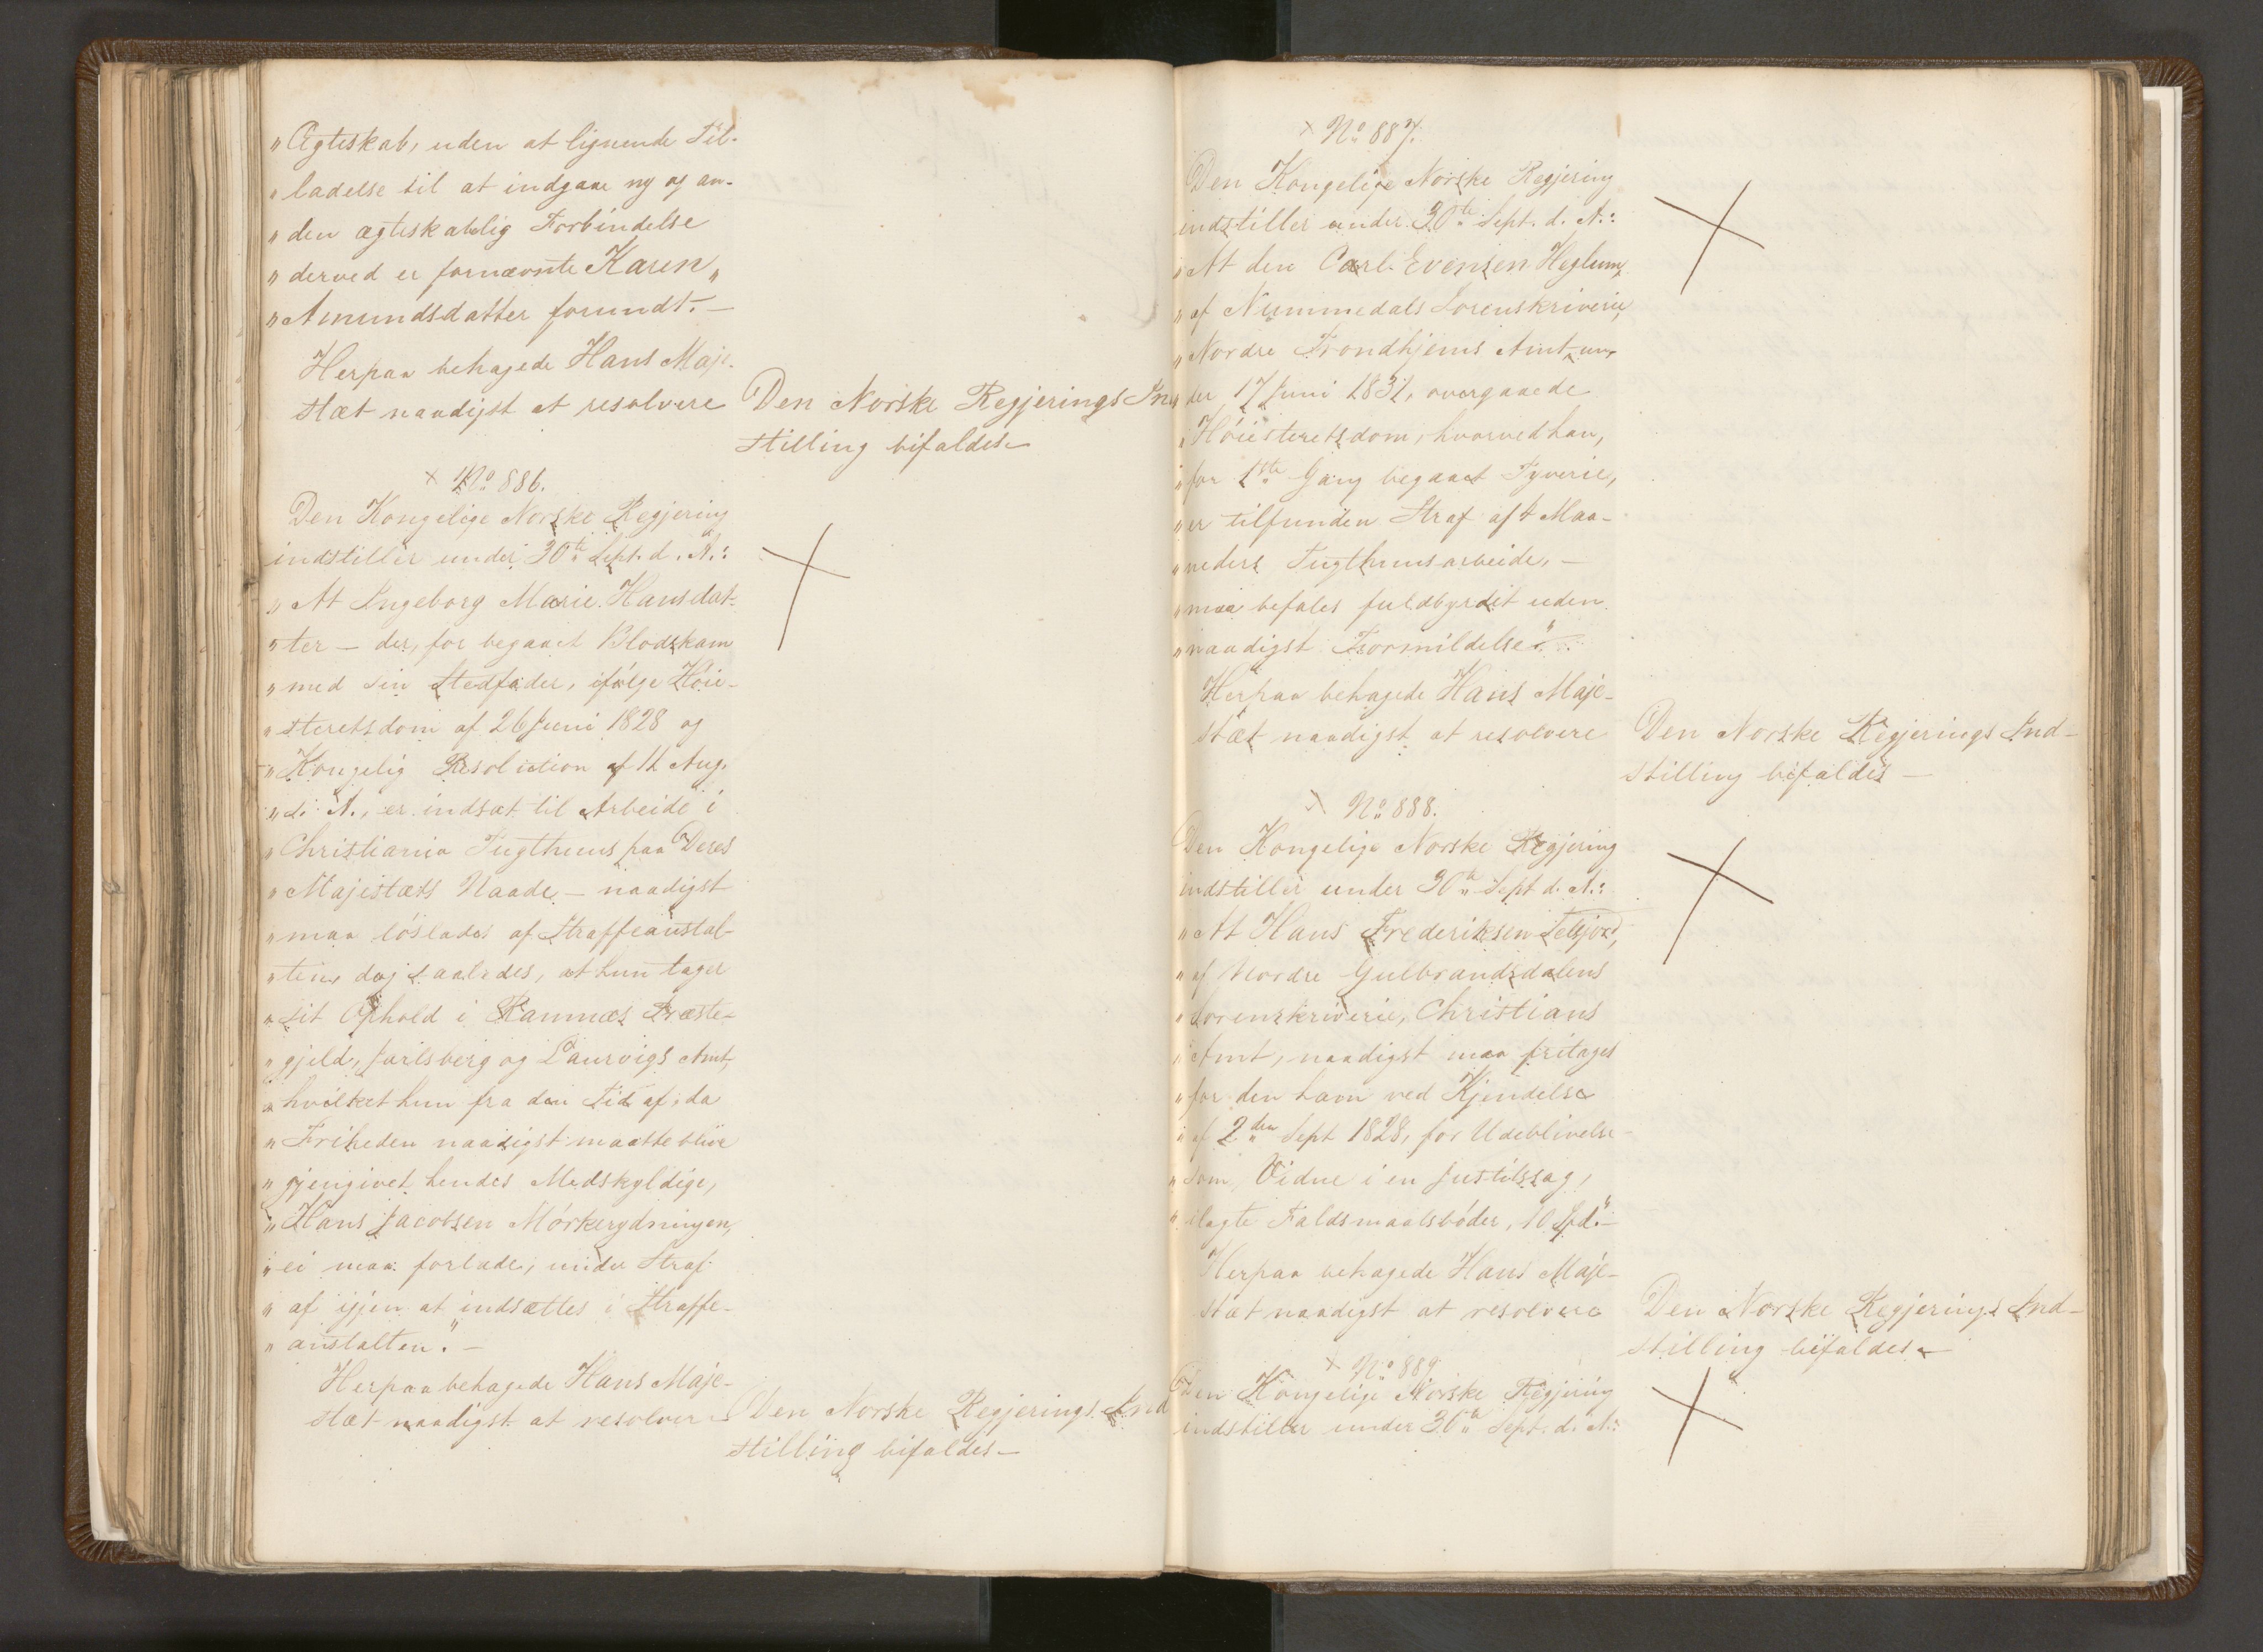 „Ægteskab, uden at lignende Til-
„ladelse til at indgaae ny og an-
„den ægteskabelig Forbindelse
„derved er fornævnte Karen„
„Amundsdatter forundt.—
Herpaa behagede Hans Maje-
stæt naadigst at resolvere
Den Norske Regjerings In
stilling bifaldes—
× No 886.
Den Kongelige Norske Regjering
indstiller under 30te Sept. d. A.:
„At Ingeborg Marie Hansdat-
„ter — der, for begaaet Blodskam
„med sin Stedfader, ifølge Høie-
„steretsdom af 26 Juni 1828 og
„Kongelig Resolution af 11 Aug.
„d. A., er indsat til Arbeide i
„Christiania Tugthuus paa Deres
„Majestæts Naade — naadigst
„maa løslades af Straffeanstal-
„ten, dog saaledes, at hun tager
„sit Ophold i Ramnæs Præste-
„gjeld, Jarlsberg og Laurvigs Amt,
„hvilket hun fra den Tid af, da
„Friheden naadigst maatte blive
„gjengivet hendes Medskyldige,
„Hans Jacobsen Mørkerydningen,
„ei maa forlade, under Straf
„af igjen at indsættes i Straffe-
„anstalten."—
Herpaa behagede Hans Maje-
stæt naadigst at resolvere
Den Norske Regjerings Ind
stilling bifaldes—
× No 887.
Den Kongelige Norske Regjering
indstiller under 30te Sept. d. A.:
„At den Carl Evensen Heglum,
„af Nummedals Sorenskriverie,
„Nordre Trondhjems Amt, un-
„der 17 Juni 1831, overgaaede
„Høiesteretsdom, hvorved han,
„for 1ste Gang begaaet Tyverie,
„er tilfunden Straf af 4 Maa-
„neders Tugthuusarbeide, —
„maa befales fuldbyrdet uden
„naadigst Formildelse".
Herpaa behagede Hans Maje-
stæt naadigst at resolvere
Den Norske Regjerings Ind-
stilling bifaldes —
× No 888.
Den Kongelige Norske Regjering
indstiller under 30te Sept d. A.:
„At Hans Frederiksen
„af Nordre Gulbrandsdalens
„Sorenskriverie, Christians
„Amt, naadigst maa fritages
„for den ham ved Kjendelse
„af 2den Sept 1828, for Udeblivelse
„som Vidne i en Justitssag,
„ilagte Faldsmaalsbøder, 10 Spd."—
Herpaa behagede Hans Maje-
stæt naadigst at resolvere
Den Norske Regjerings Ind-
stilling bifaldes—
× No 889.
Den Kongelige Norske Regjering
indstiller under 30te Sept. d. A.: